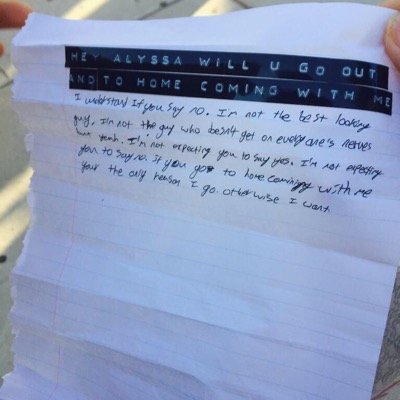 HEY ALYSSA WILL U GO OUT
AND TO HOME COMING WITH ME
I understand if you say no. I'm not the best looking
guy. I'm not the guy who doesn't get on everyone's nerves
but yeah. I'm not expecting you to say yes. I'm not expecting
you to say no. If you go to home comining with me
your the only reason I go. otherwise I want